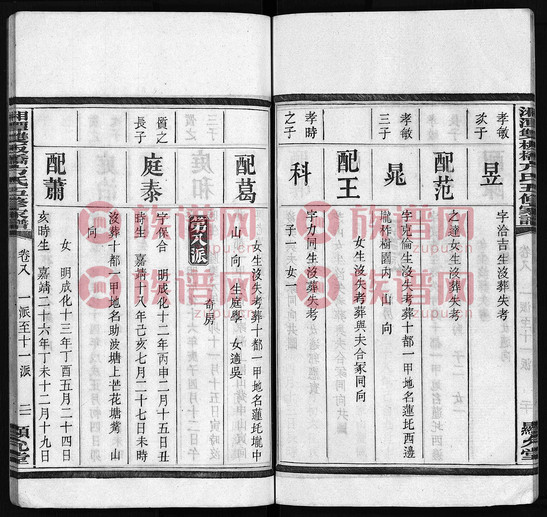 湘潭雙板橋方氏五修家譜
卷八 一派至十一派 二十
孝敏
次子
昱
字洽吉生沒葬失考
配范
之達女生沒葬失考
孝敏
三子
晁
字克倫生沒失考葬十都一甲地名蓮圯西邊
朧柞櫹園內艮山坤向
配王
女生沒失考葬與夫合冢同向
孝時
之子
科
字力同生沒葬失考
子一 女一
配葛
女生沒失考葬十都一甲地名蓮圯壠中
山 向 生庭學 女適吳
第八派
奇房
質之
長子
庭泰
字保合 明成化十二年丙申二月十五日丑
時生 嘉靖十八年己亥七月二十七日未時
沒葬十都一甲地名助波塘上芒花塘嵩 山
向
配蕭
女 明成化十三年丁酉五月二十四日
亥時生 嘉靖二十六年丁未十二月十九日
湘潭雙板橋方氏五修家譜
卷八 一派至十一派
族谱网
zupu.cn